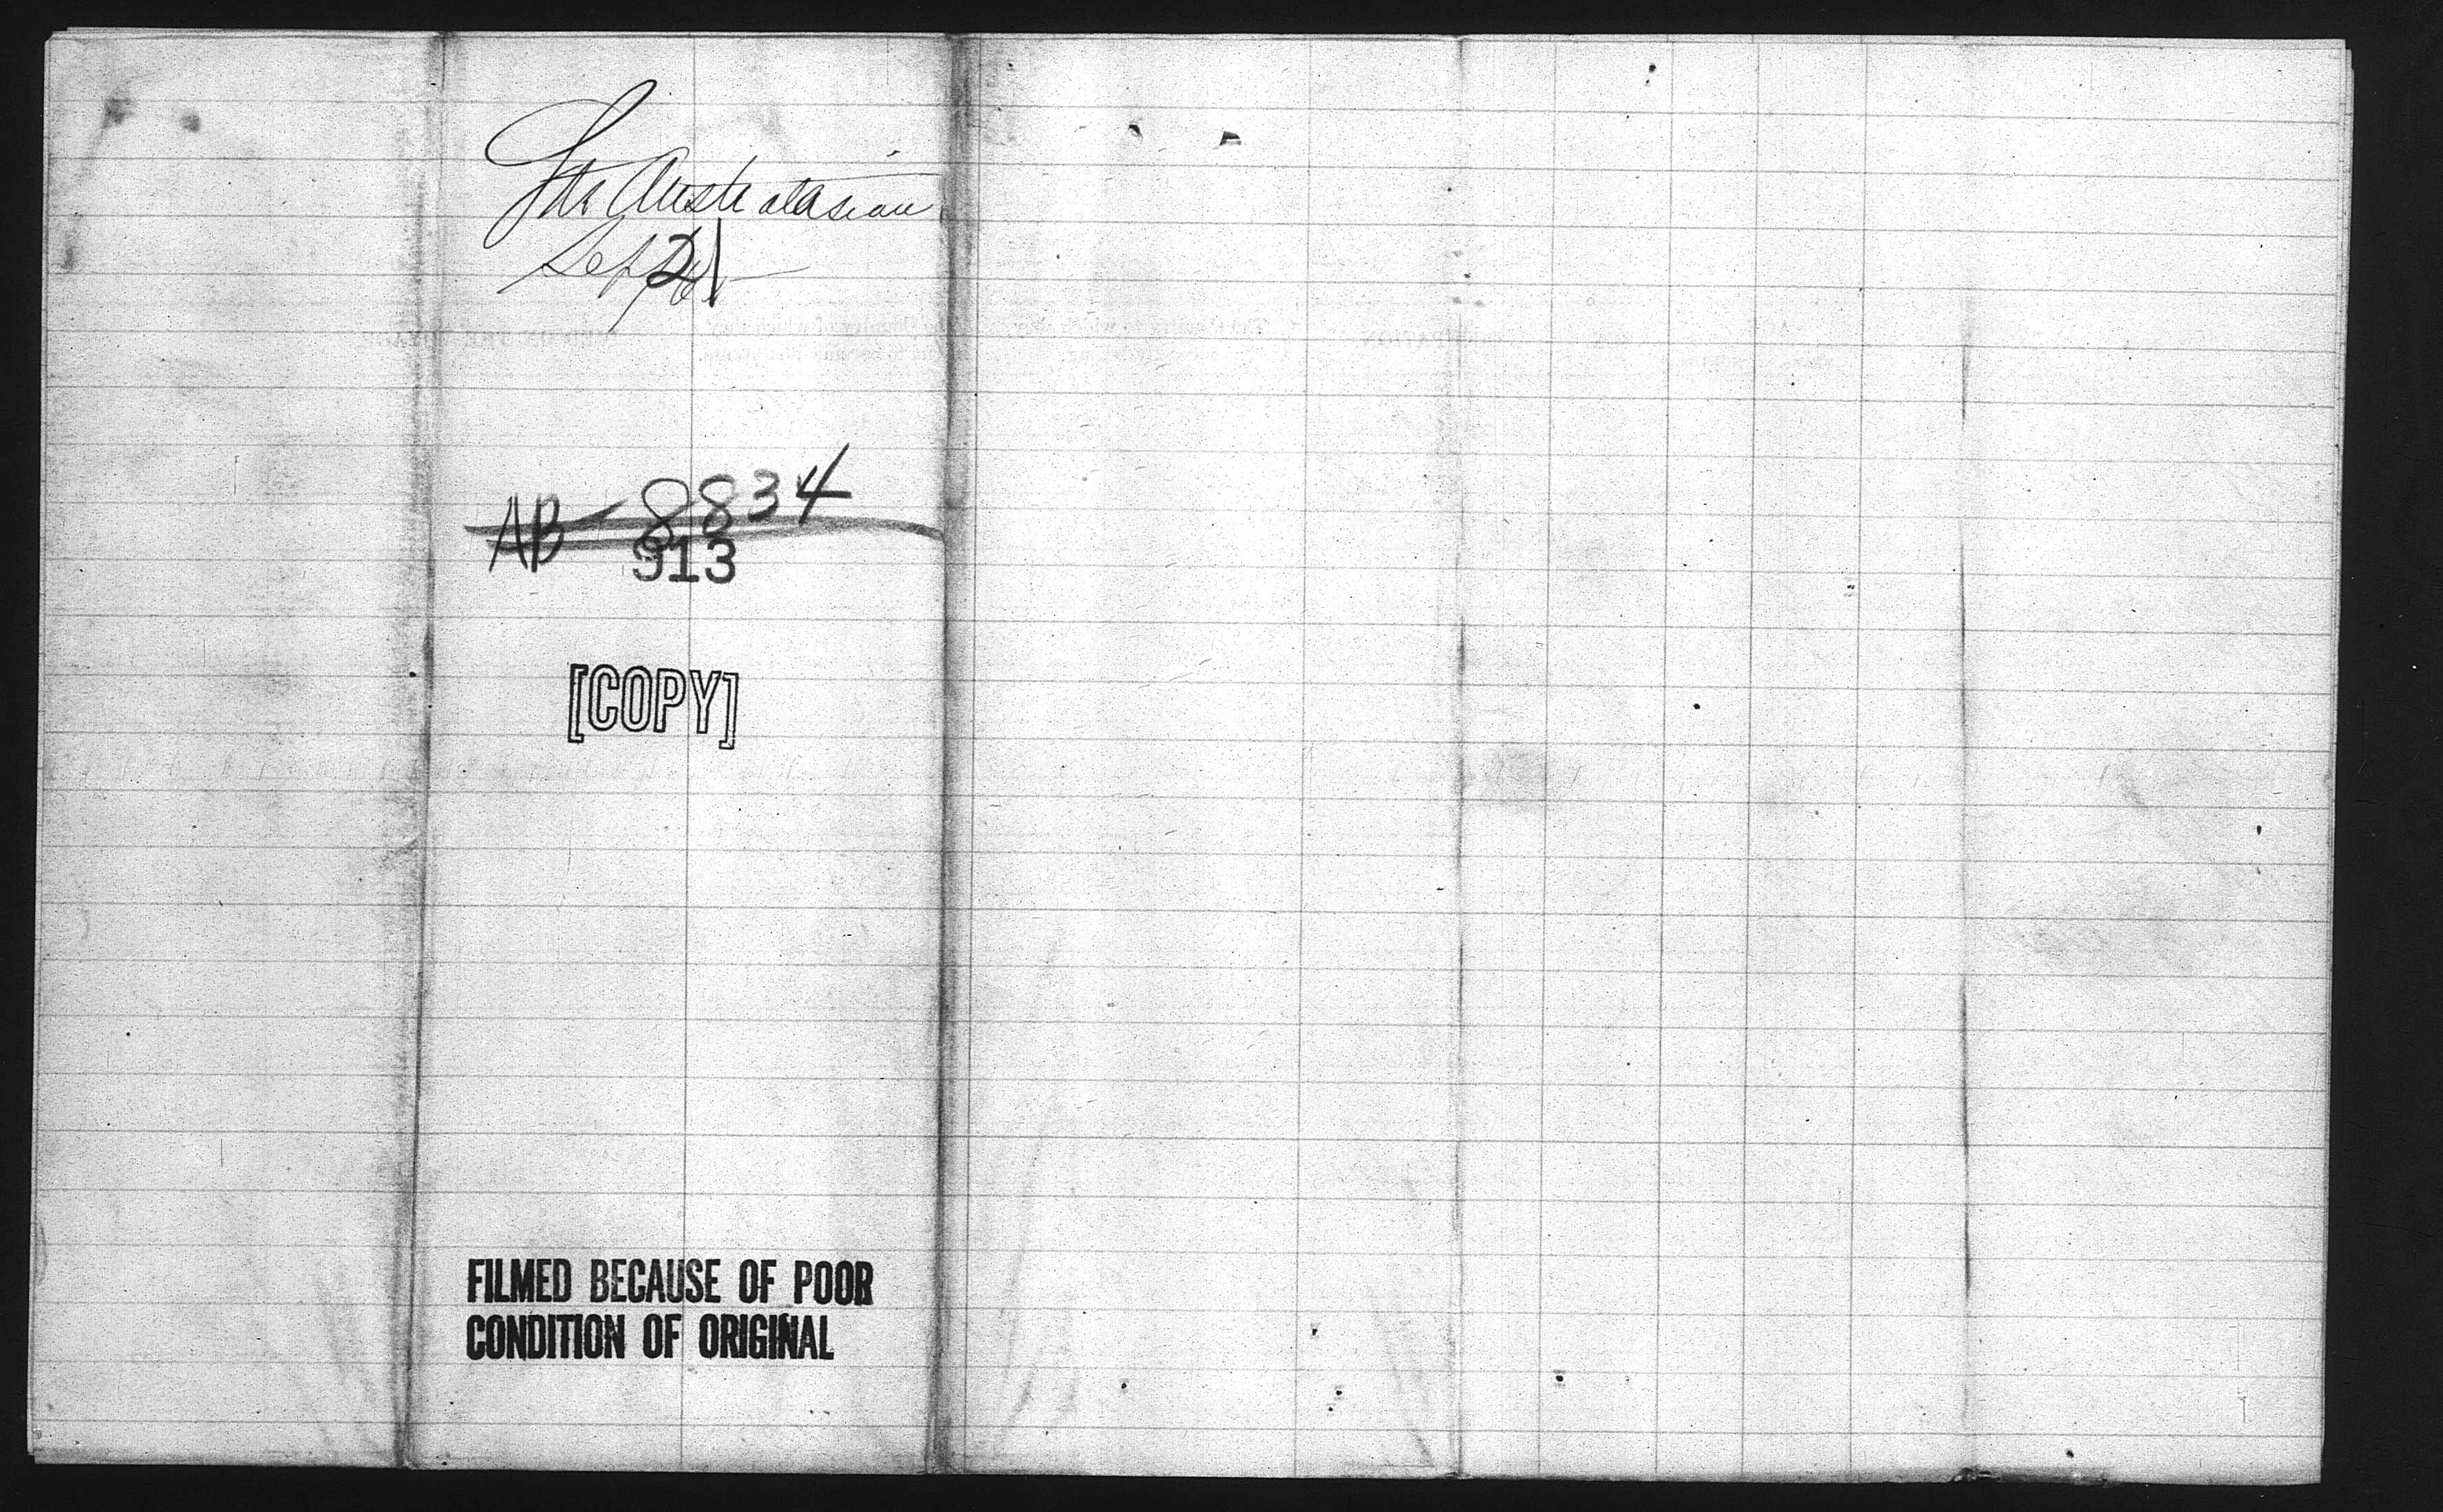 Str Australasian
Sept 21
AB 8834
913
[COPY]
FILMED BECAUSE OF POOR
CONDITION OF ORIGINAL